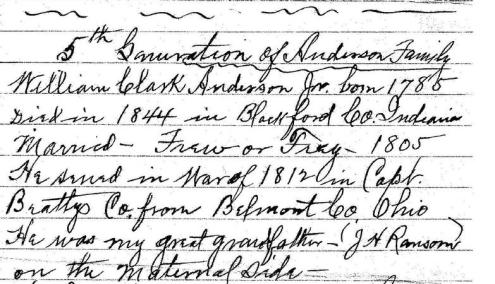 5th Generation of Anderson Family
William Clark Anderson Jr. born 1785
Died in 1844 in Blackford Co. Indiana
Married - Frew or Fray - 1805
He served in War of 1812 in Capt.
Beattys Co. from Belmont Co. Ohio
He was my great grandfather - (J H Ransom)
on the Maternal Side -